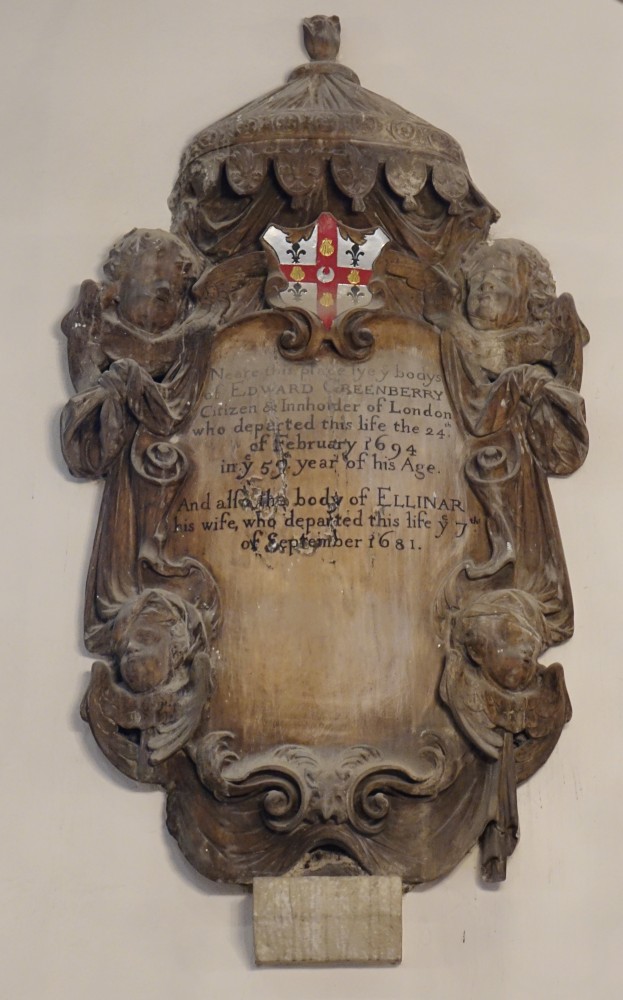 Neare this place lye yͤ bodys
of EDWARD GREENBERRY
Citizen & Innholder of London
who departed this life the 24ᵗʰ
of February 1694
in yͤ 59ᵗʰ year of his Age.
And also the body of ELLINAR
his wife, who departed this life yͤ 7ᵗʰ
of September 1681.